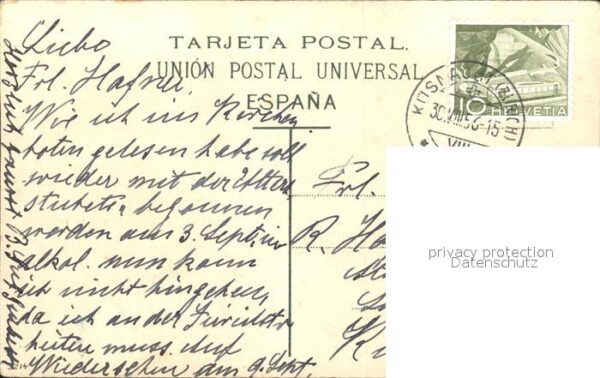 Liebe
Frl. Hafner,
Wie ich im Kirchen
boten gelesen habe soll
wieder mit der
stubete begonnen
werden am 3. Sept. im
alkol. nun kann
ich nicht hingehen,
da ich an der
heiten muss. Auf
Wiedersehen am 9. Sept.
Herzlich grüsst
TARJETA POSTAL.
UNIÓN POSTAL UNIVERSAL
ESPAÑA
10 HELVETIA
KÜSNACHT (ZÜRICH)
30.VIII.53-15
VIII
Frl.
R. Ha
privacy protection
Datenschutz